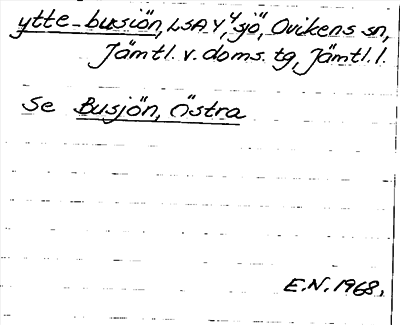 ytte-busiön, LSA Y, 4 sjö, Ovikens sn,
Jämtl. v. doms. tg, Jämtl. l.
Se Busjön, Östra
E.N. 1968.